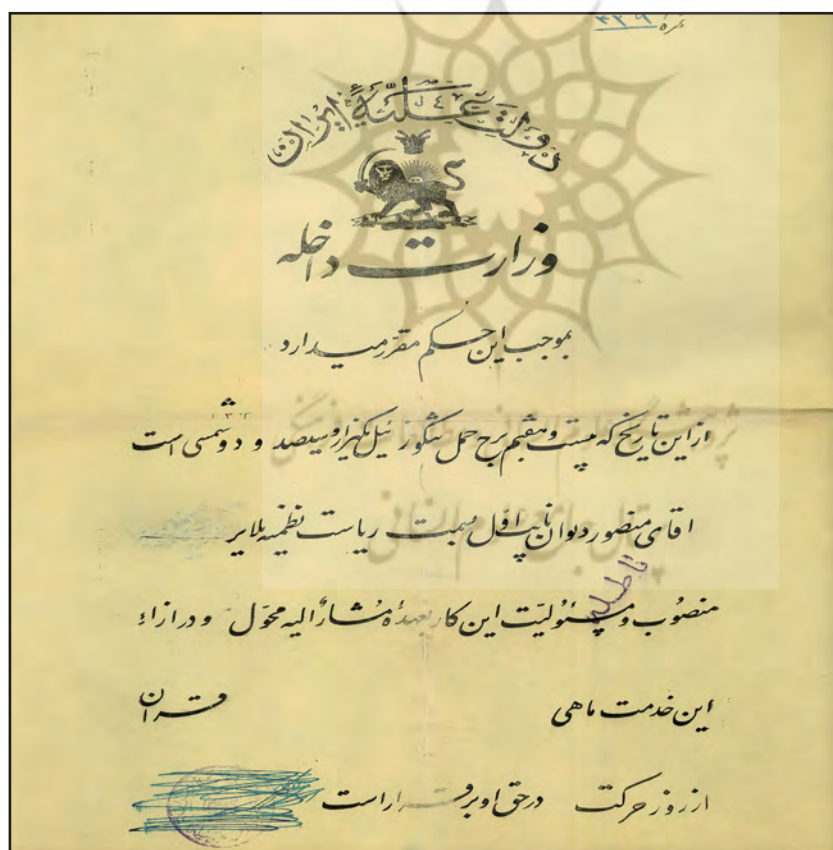 نمرهٔ ۳۳۹
دولت علیّهٔ ایران
وزارت داخله
بموجب این حکم مقرّر میدارد
از این تاریخ که بیست و هفتم برج حمل تنگوزئیل یکهزار و سیصد و دو شمسی است
اقای منصور دیوان نایب اوّل بسمت ریاست نظمیه ملایر
منصوب و مسئولیّت این کار بعهدهٔ مشارٌالیه محوّل و در ازاء
این خدمت ماهی قران
از روز حرکت در حق او برقرار است
باطله